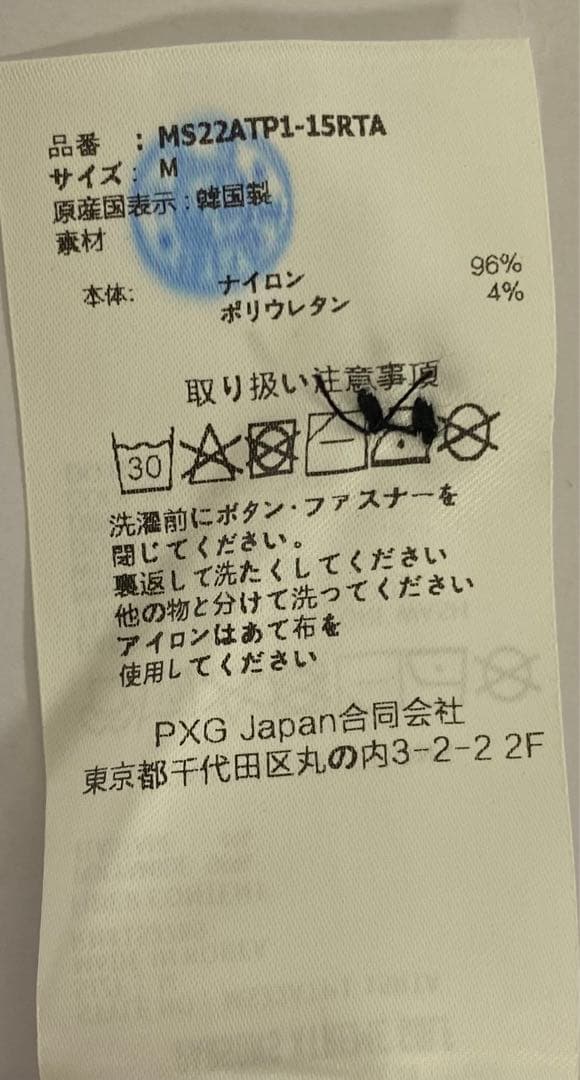 品番 : MS22ATP1-15RTA
サイズ: M
原産国表示:韓国製
素材
本体: ナイロン 96%
ポリウレタン 4%
取り扱い注意事項
30
洗濯前にボタン・ファスナーを
閉じてください。
裏返して洗たくしてください
他の物と分けて洗ってください
アイロンはあて布を
使用してください
PXG Japan合同会社
東京都千代田区丸の内3-2-2 2F